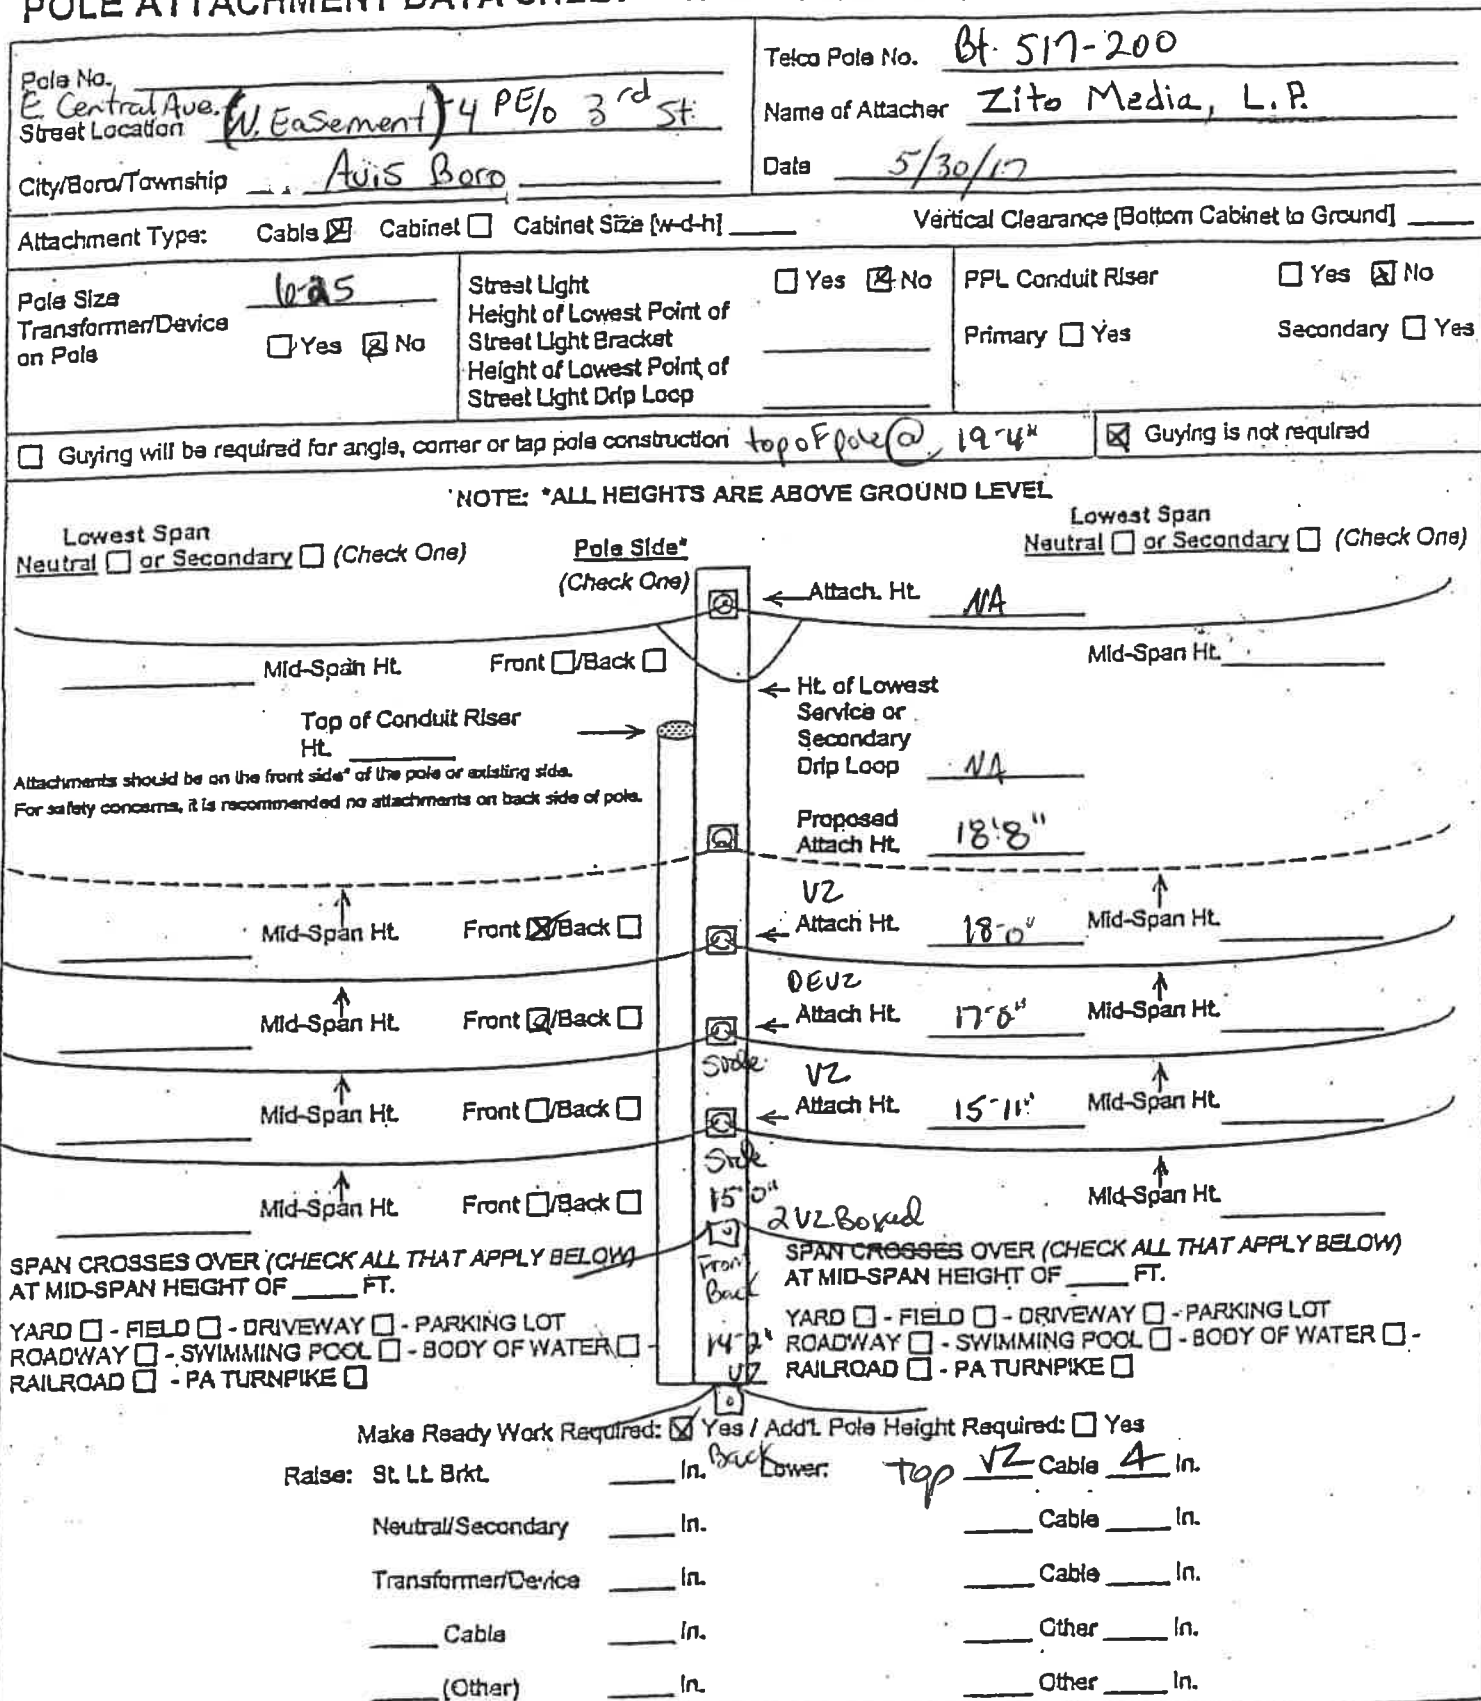 POLE ATTACHMENT DATA SHEET
Pole No.
Telco Pole No. Bt. 517-200
E Central Ave. (W. Easement) 4 PE/o 3rd St.
Street Location
Name of Attacher Zito Media, L.P.
City/Boro/Township Avis Boro
Date 5/30/17
Attachment Type: Cable ☒ Cabinet ☐ Cabinet Size [w-d-h] ____ Vertical Clearance [Bottom Cabinet to Ground] ____
Pole Size 6-25
Transformer/Device on Pole ☐ Yes ☒ No
Street Light ☐ Yes ☒ No
Height of Lowest Point of
Street Light Bracket
Height of Lowest Point of
Street Light Drip Loop
PPL Conduit Riser ☐ Yes ☒ No
Primary ☐ Yes Secondary ☐ Yes
☐ Guying will be required for angle, corner or tap pole construction top of pole @ 19-4" ☒ Guying is not required
NOTE: *ALL HEIGHTS ARE ABOVE GROUND LEVEL
Lowest Span
Neutral ☐ or Secondary ☐ (Check One)
Pole Side*
(Check One)
Lowest Span
Neutral ☐ or Secondary ☐ (Check One)
Attach. Ht. NA
Mid-Span Ht. Front ☐/Back ☐ Mid-Span Ht.
Top of Conduit Riser
Ht.
Ht. of Lowest
Service or
Secondary
Drip Loop NA
Attachments should be on the front side* of the pole or existing side.
For safety concerns, it is recommended no attachments on back side of pole.
Proposed
Attach Ht. 18'8"
VZ
Mid-Span Ht. Front ☒/Back ☐ Attach Ht. 18-0" Mid-Span Ht.
DEVZ
Mid-Span Ht. Front ☒/Back ☐ Attach Ht. 17-0" Mid-Span Ht.
VZ
Mid-Span Ht. Front ☐/Back ☐ Attach Ht. 15-11" Mid-Span Ht.
Side
Mid-Span Ht. Front ☐/Back ☐ 15'0" Mid-Span Ht.
2 VZ Boxed
SPAN CROSSES OVER (CHECK ALL THAT APPLY BELOW)
AT MID-SPAN HEIGHT OF ____ FT.
YARD ☐ - FIELD ☐ - DRIVEWAY ☐ - PARKING LOT
ROADWAY ☐ - SWIMMING POOL ☐ - BODY OF WATER ☐ -
RAILROAD ☐ - PA TURNPIKE ☐
Front
Back
14-2"
VZ
SPAN CROSSES OVER (CHECK ALL THAT APPLY BELOW)
AT MID-SPAN HEIGHT OF ____ FT.
YARD ☐ - FIELD ☐ - DRIVEWAY ☐ - PARKING LOT
ROADWAY ☐ - SWIMMING POOL ☐ - BODY OF WATER ☐ -
RAILROAD ☐ - PA TURNPIKE ☐
Make Ready Work Required: ☒ Yes / Add'l. Pole Height Required: ☐ Yes
Back
Raise: St. Lt. Brkt. ____ In. Lower: Top VZ Cable 4 In.
Neutral/Secondary ____ In. ____ Cable ____ In.
Transformer/Device ____ In. ____ Cable ____ In.
____ Cable ____ In. ____ Other ____ In.
____ (Other) ____ In. ____ Other ____ In.